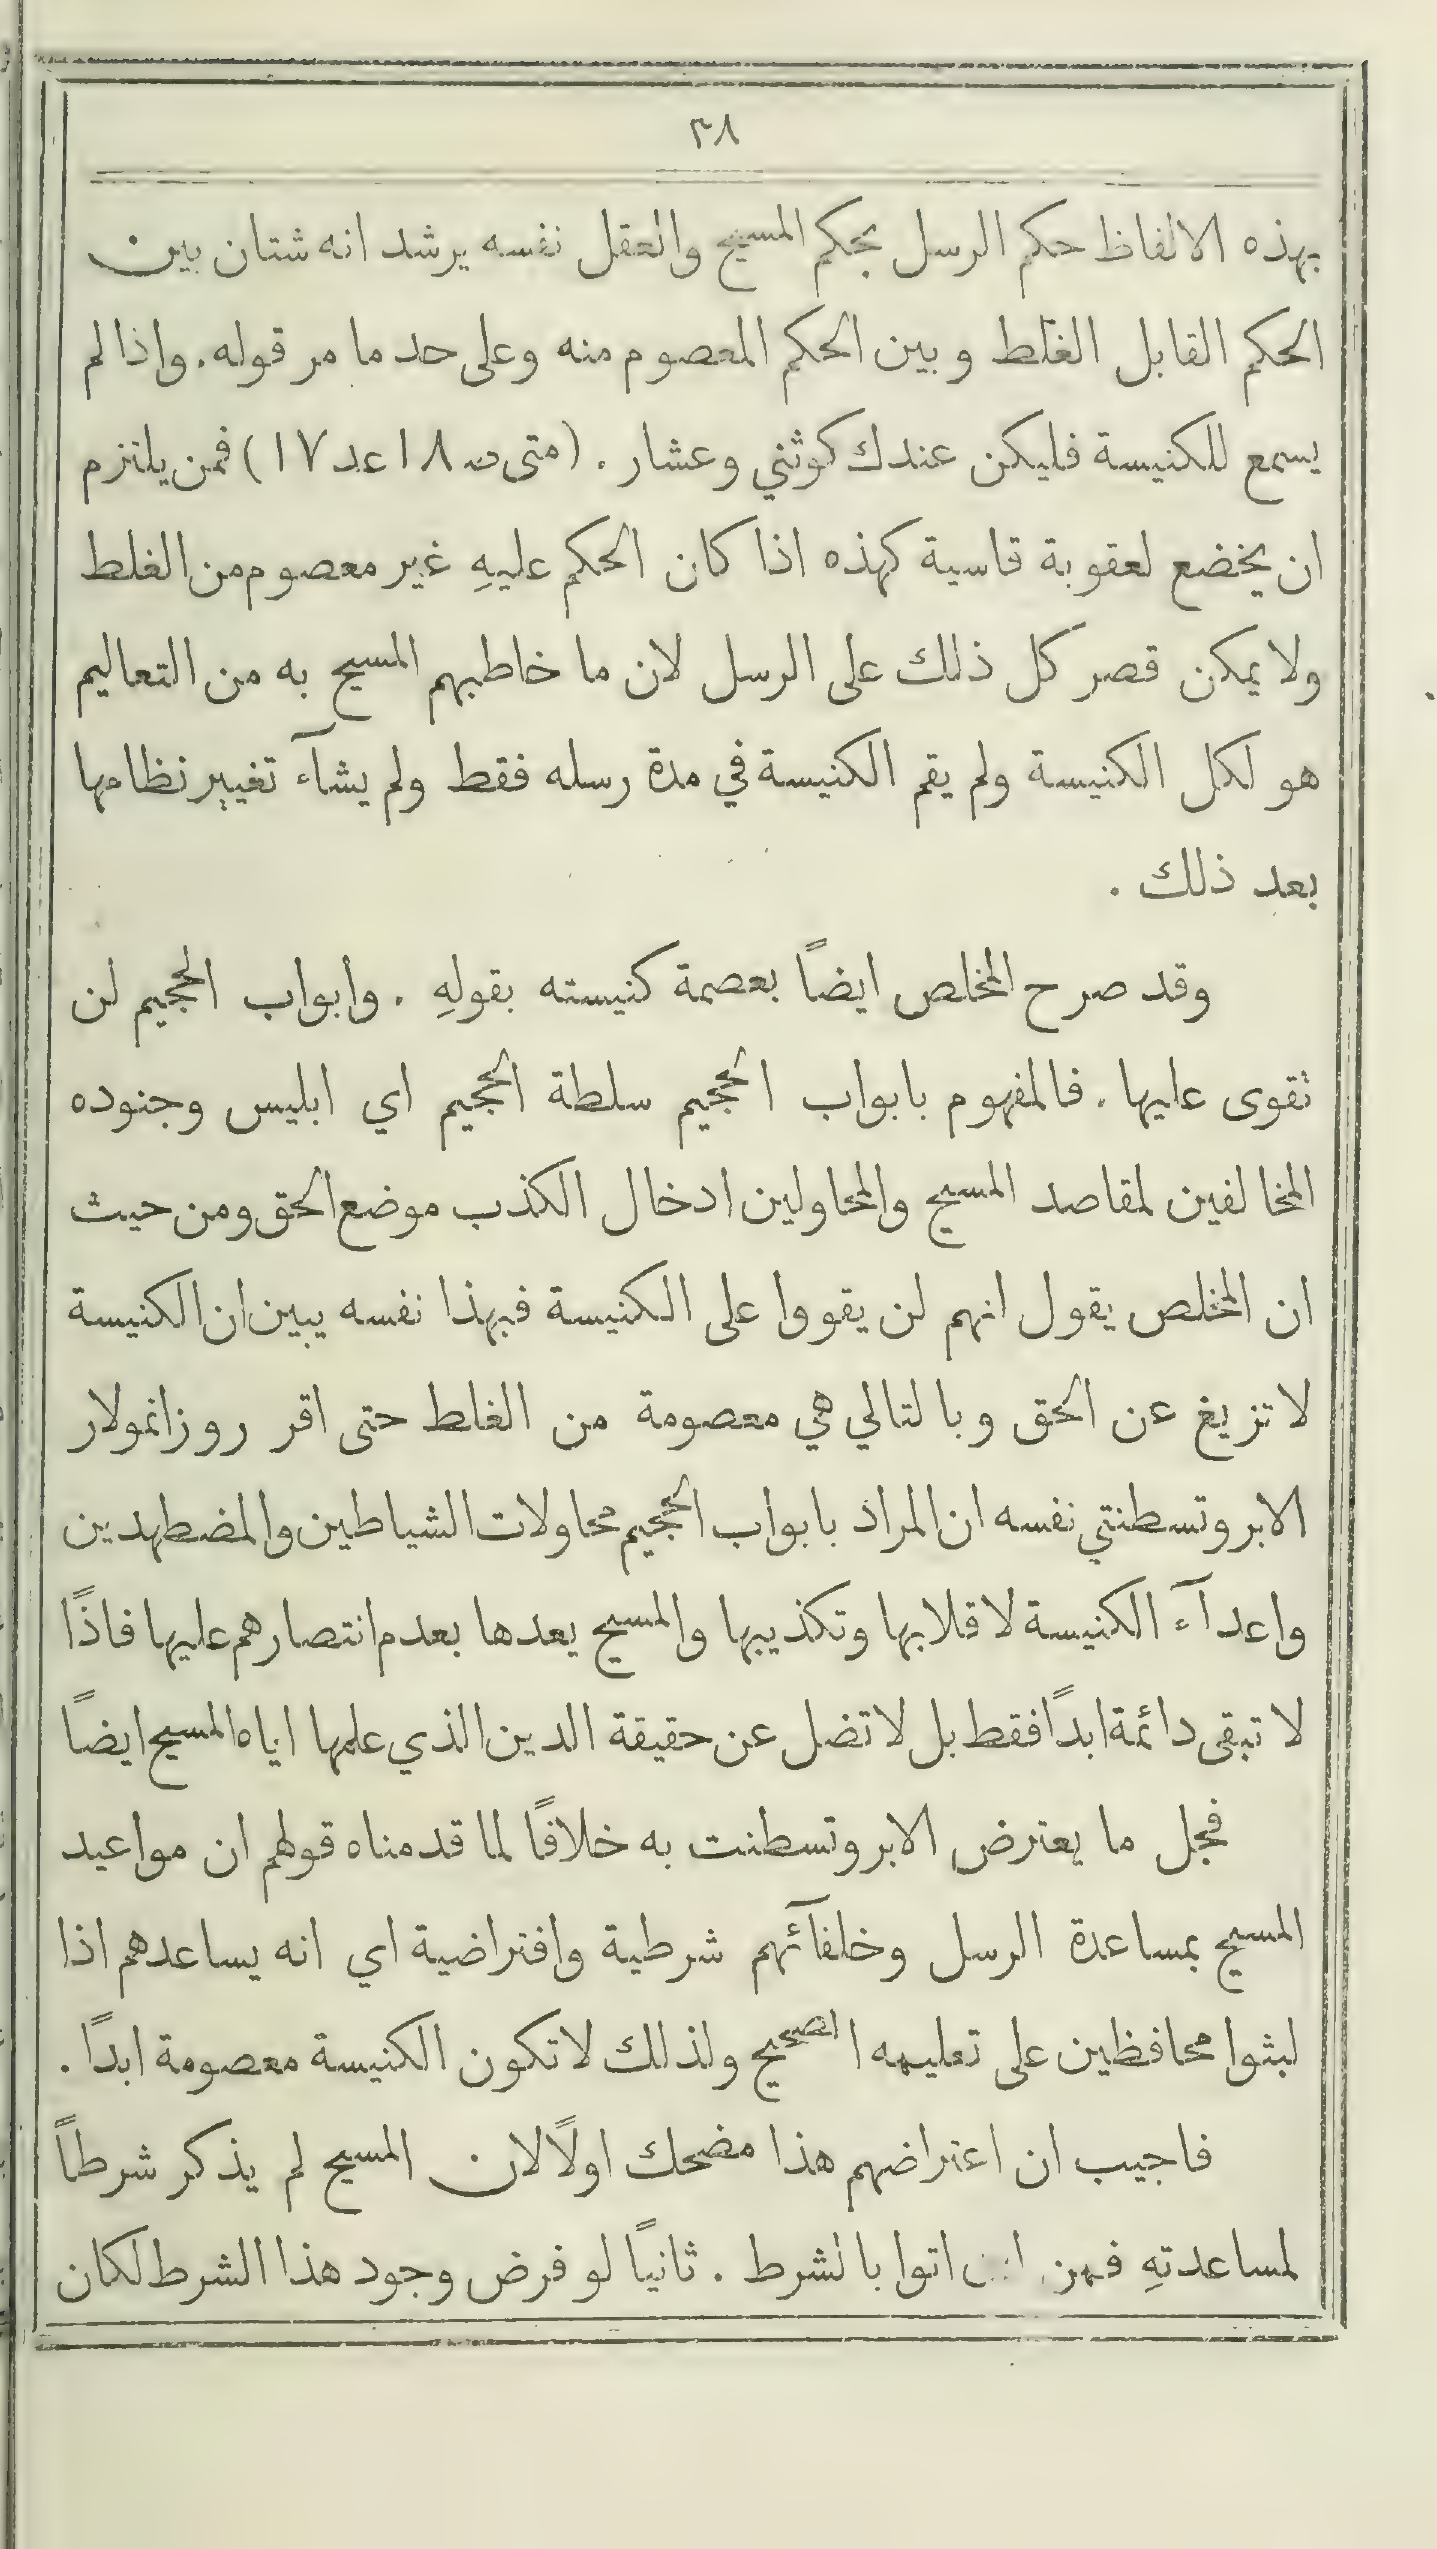 ٣٨
بهذه الالفاظ حكم الرسل بحكم المسيح والعقل نفسه يرشد انه شتان بين
الحكم القابل الغلط وبين الحكم المعصوم منه وعلى حد ما مر قوله. واذا لم
يسمع للكنيسة فليكن عندك كوثني وعشار . (متى ص ١٨ عد ١٧) فمن يلتزم
ان يخضع لعقوبة قاسية كهذه اذا كان الحكم عليهِ غير معصوم من الغلط
ولا يمكن قصر كل ذلك على الرسل لان ما خاطبهم المسيح به من التعاليم
هو لكل الكنيسة ولم يقم الكنيسة في مدة رسله فقط ولم يشآء تغيير نظامها
بعد ذلك .
وقد صرح المخلص ايضاً بعصمة كنيسته بقولهِ . وابواب الجحيم لن
تقوى عليها . فالمفهوم بابواب الجحيم سلطة الجحيم اي ابليس وجنوده
المخالفين لمقاصد المسيح والمحاولين ادخال الكذب موضع الحق ومن حيث
ان المخلص يقول انهم لن يقووا على الكنيسة فبهذا نفسه يبين ان الكنيسة
لا تزيغ عن الحق وبالتالي هي معصومة من الغلط حتى اقر روزانمولار
الابروتسطنتي نفسه ان المراد بابواب الجحيم محاولات الشياطين والمضطهدين
واعدآء الكنيسة لاقلابها وتكذيبها والمسيح يعدها بعدم انتصارهم عليها فاذًا
لا تبقى دائمة ابداً فقط بل لا تضل عن حقيقة الدين الذي علمها اياه المسيح ايضاً
فجل ما يعترض الابروتسطنت به خلافًا لما قدمناه قولهم ان مواعيد
المسيح بمساعدة الرسل وخلفآئهم شرطية وافتراضية اي انه يساعدهم اذا
لبثوا محافظين على تعليمه الصحيح ولذلك لا تكون الكنيسة معصومة ابداً .
فاجيب ان اعتراضهم هذا مضحك اولاً لان المسيح لم يذكر شرطاً
لمساعدتهِ فمن اين اتوا بالشرط . ثانياً لو فرض وجود هذا الشرط لكان